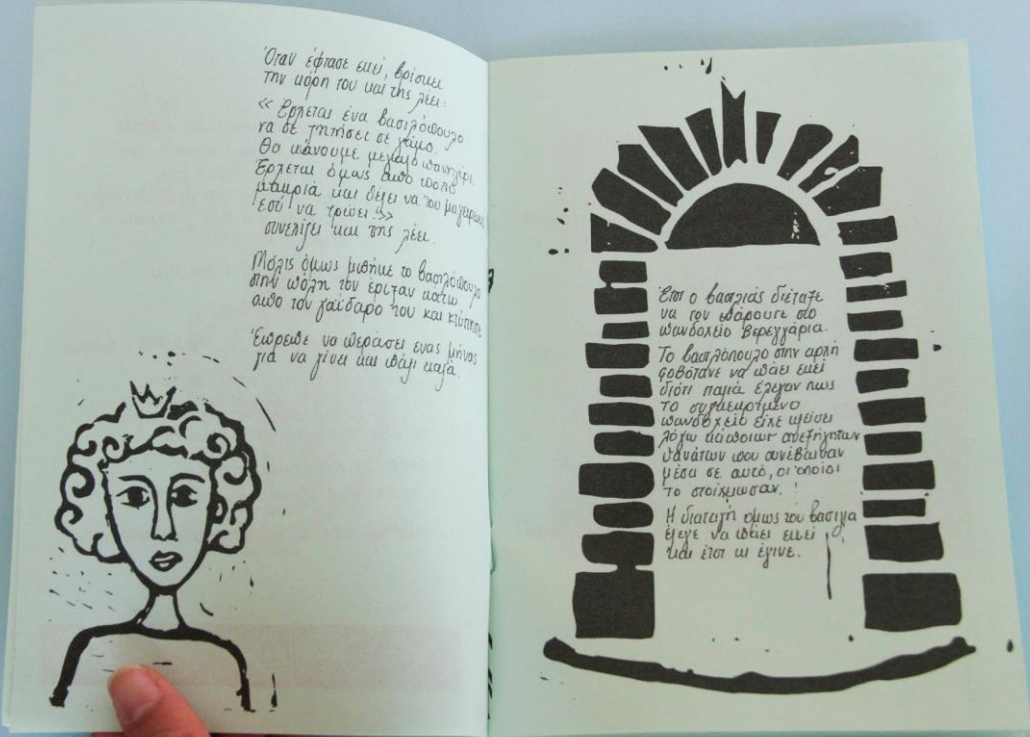 Όταν έφτασε εκεί, βρίσκει
την κόρη του και της λέει:
<< Έρχεται ένα βασιλόπουλο
να σε ζητήσει σε γάμο.
Θα κάνουμε μεγάλο πανηγύρι.
Έρχεται όμως από πολύ
μακριά και θέλει να του μαγειρέψεις
εσύ να τρώει.>>
συνεχίζει και της λέει.
Μόλις όμως μπήκε το βασιλόπουλο
στην πόλη τον έριξαν κάτω
από τον γαϊδαρο του και κτύπησε
Έπρεπε να περάσει ενας μήνας
για να γίνει και πάλι καλά.
Έτσι ο βασιλιάς διέταξε
να τον πάρουσε στο
πανδοχείο Βερεγγάρια.
Το βασιλόπουλο στην αρχή
φοβότανε να πάει εκεί
διότι παλιά έλεγαν πως
το συγκεκριμένο
πανδοχείο είχε κλείσει
λόγω κάποιων ανεξήγητων
θανάτων που συνέβαιναν
μέσα σε αυτό, οι οποίοι
το στοίχειωσαν.
Η διαταγή όμως του βασιλιά
έλεγε να πάει εκεί
και έτσι κι έγινε.